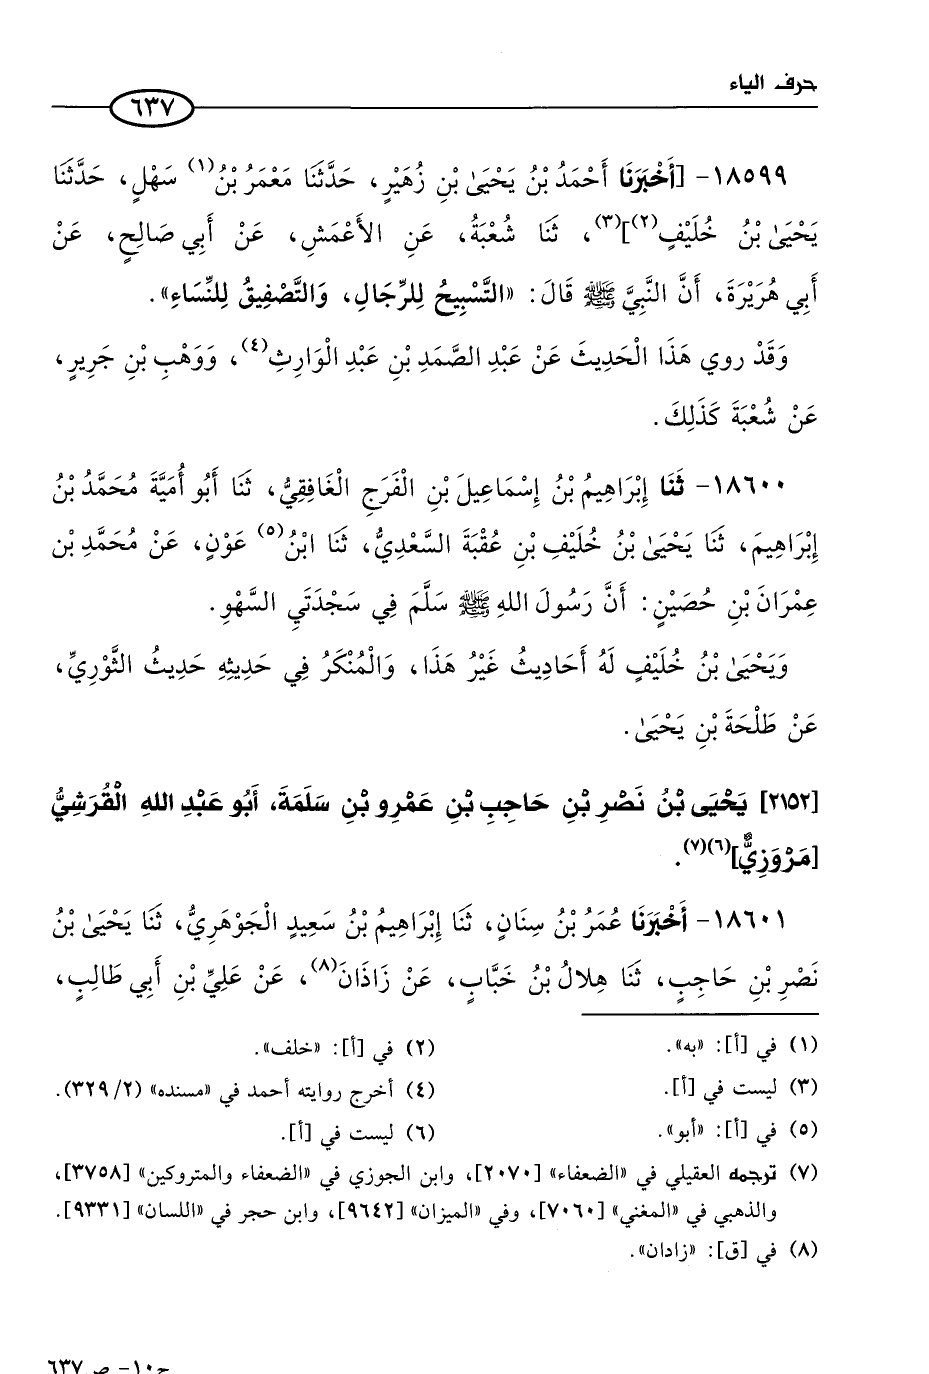 حرف الياء
٦٣٧
١٨٥٩٩- [أَخْبَرَنَا أَحْمَدُ بْنُ يَحْيَىٰ بْنِ زُهَيْرٍ، حَدَّثَنَا مَعْمَرُ بْنُ(١) سَهْلٍ، حَدَّثَنَا
يَحْيَىٰ بْنُ خُلَيْفٍ(٢)](٣)، ثَنَا شُعْبَةُ، عَنِ الأَعْمَشِ، عَنْ أَبِي صَالِحٍ، عَنْ
أَبِي هُرَيْرَةَ، أَنَّ النَّبِيَّ ﷺ قَالَ: «التَّسْبِيحُ لِلرِّجَالِ، وَالتَّصْفِيقُ لِلنِّسَاءِ».
وَقَدْ روي هَذَا الْحَدِيثَ عَنْ عَبْدِ الصَّمَدِ بْنِ عَبْدِ الْوَارِثِ(٤)، وَوَهْبِ بْنِ جَرِيرٍ،
عَنْ شُعْبَةَ كَذَلِكَ.
١٨٦٠٠- ثَنَا إِبْرَاهِيمُ بْنُ إِسْمَاعِيلَ بْنِ الْفَرَجِ الْغَافِقِيُّ، ثَنَا أَبُو أُمَيَّةَ مُحَمَّدُ بْنُ
إِبْرَاهِيمَ، ثَنَا يَحْيَىٰ بْنُ خُلَيْفِ بْنِ عُقْبَةَ السَّعْدِيُّ، ثَنَا ابْنُ(٥) عَوْنٍ، عَنْ مُحَمَّدِ بْنِ
عِمْرَانَ بْنِ حُصَيْنٍ: أَنَّ رَسُولَ اللهِ ﷺ سَلَّمَ فِي سَجْدَتَيِ السَّهْوِ.
وَيَحْيَىٰ بْنُ خُلَيْفٍ لَهُ أَحَادِيثُ غَيْرُ هَذَا، وَالْمُنْكَرُ فِي حَدِيثِهِ حَدِيثُ الثَّوْرِيِّ،
عَنْ طَلْحَةَ بْنِ يَحْيَىٰ.
[٢١٥٢] يَحْيَى بْنُ نَصْرِ بْنِ حَاجِبِ بْنِ عَمْرِو بْنِ سَلَمَةَ، أَبُو عَبْدِ اللهِ الْقُرَشِيُّ
[مَرْوَزِيٌّ](٦)(٧).
١٨٦٠١- أَخْبَرَنَا عُمَرُ بْنُ سِنَانٍ، ثَنَا إِبْرَاهِيمُ بْنُ سَعِيدٍ الْجَوْهَرِيُّ، ثَنَا يَحْيَىٰ بْنُ
نَصْرِ بْنِ حَاجِبٍ، ثَنَا هِلالُ بْنُ خَبَّابٍ، عَنْ زَاذَانَ(٨)، عَنْ عَلِيِّ بْنِ أَبِي طَالِبٍ،
(١) في [أ]: «به».
(٢) في [أ]: «خلف».
(٣) ليست في [أ].
(٤) أخرج روايته أحمد في «مسنده» (٢/ ٣٢٩).
(٥) في [أ]: «أبو».
(٦) ليست في [أ].
(٧) ترجمه العقيلي في «الضعفاء» [٢٠٧٠]، وابن الجوزي في «الضعفاء والمتروكين» [٣٧٥٨]،
والذهبي في «المغني» [٧٠٦٠]، وفي «الميزان» [٩٦٤٢]، وابن حجر في «اللسان» [٩٣٣١].
(٨) في [ق]: «زادان».
ج١٠- ص ٦٣٧